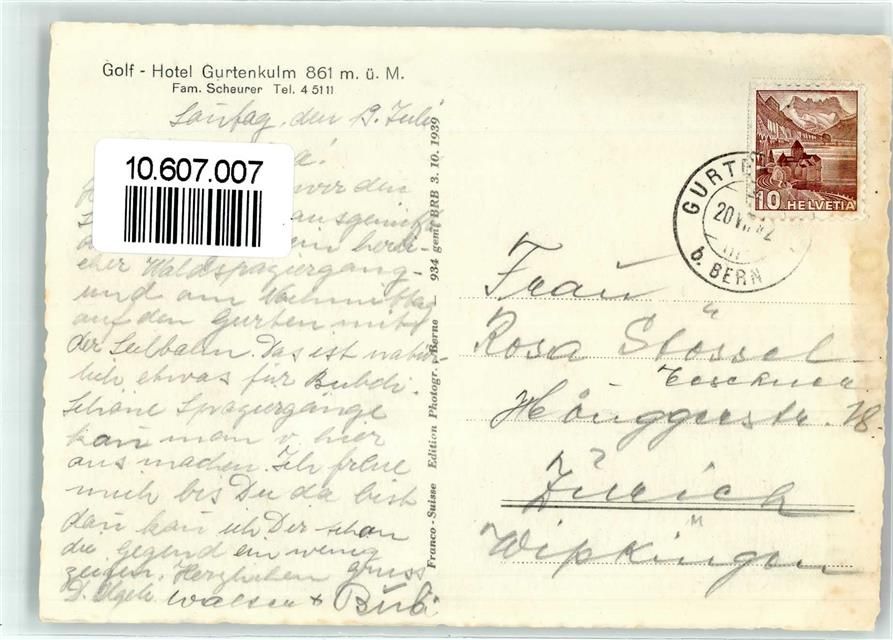 Golf - Hotel Gurtenkulm 861 m. ü. M.
Fam. Scheurer Tel. 4 51 11
Sontag, den 19. Juli
10.607.007
wir den
ausgenüt
ein herli-
cher Waldspaziergang
und am Nachmittag
auf den Gurten mitt
der Seilbahn. Das ist natür-
lich etwas für Bubdi.
Schöne Spaziergänge
kan man v. hier
aus machen. Ich freue
mich bis Du da bist
dan kan ich Dir schon
die Gegend ein wenig
zeigen. Herzlichen Gruss
Walter + Bubi
Franco-Suisse Edition Photogr., Berne — 934 gemäß BRB 3. 10. 1939
10 HELVETIA
GURTEN
20 VII 42
b. BERN
Frau
Rosa Stössel
Hönggerstr. 18.
Zürich
Wipkingen